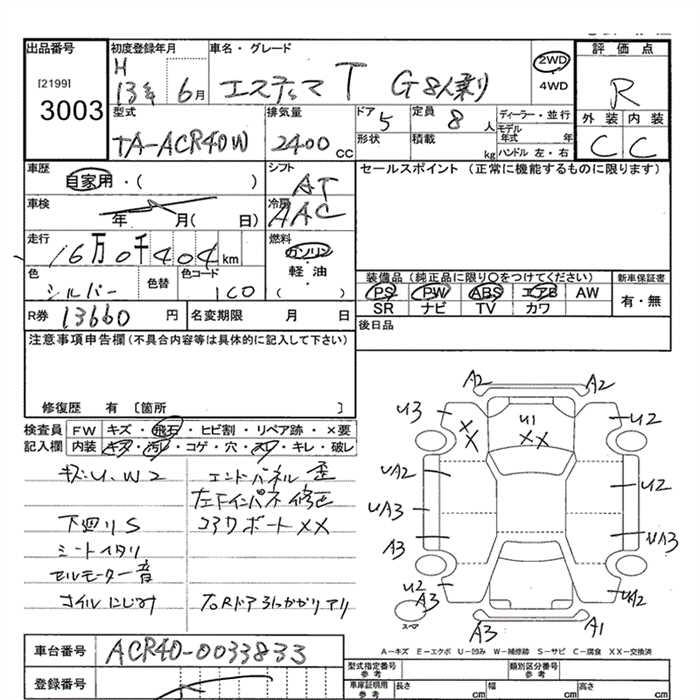 出品番号
[2199]
3003
初度登録年月
H
13年 6月
車名・グレード
エスティマ T G 8人乗り
2WD
4WD
評価点
R
外装 内装
C C
型式
TA-ACR40W
排気量
2400 CC
ドア
5
形状
定員
8 人
積載
kg
ディーラー・並行
モデル年式 年
ハンドル 左・右
車歴
自家用・( )
シフト
AT
セールスポイント (正常に機能するものに限ります)
車検
年 月( 日)
冷房
AAC
走行
16万0千404km
燃料
ガソリン
軽・油
( )
色
シルバー
色替
色コード
1C0
装備品 (純正品に限り○をつけてください)
PS PW ABS エアB AW
SR ナビ TV カワ
新車保証書
有・無
R券 13660 円
名変期限 月 日
後日品
注意事項申告欄 (不具合内容等は具体的に記入して下さい)
修復歴 有 〔箇所 〕
検査員
記入欄
FW キズ・飛石・ヒビ割・リペア跡・×要
内装 キズ・汚レ・コゲ・穴・スレ・キレ・破レ
キズU、W2
エンドパネル 歪
左フインパネ 修正
下廻りS
コアサポート××
シートヘタリ
セルモーター音
オイルにじみ
右Rドア引っかかりアリ
A2 A2
U3
××
U1
××
U2
UA2
U2
UA3
UA3
A3
U2
A3
UA2
スペア
A3
A1
A-キズ E-エクボ U-凹み W-補修跡 S-サビ C-腐食 XX-交換済
車台番号
ACR40-0033833
登録番号
型式指定番号
参考
類別区分番号
参考
車庫証明用
参考
長さ cm
幅 cm
高さ cm